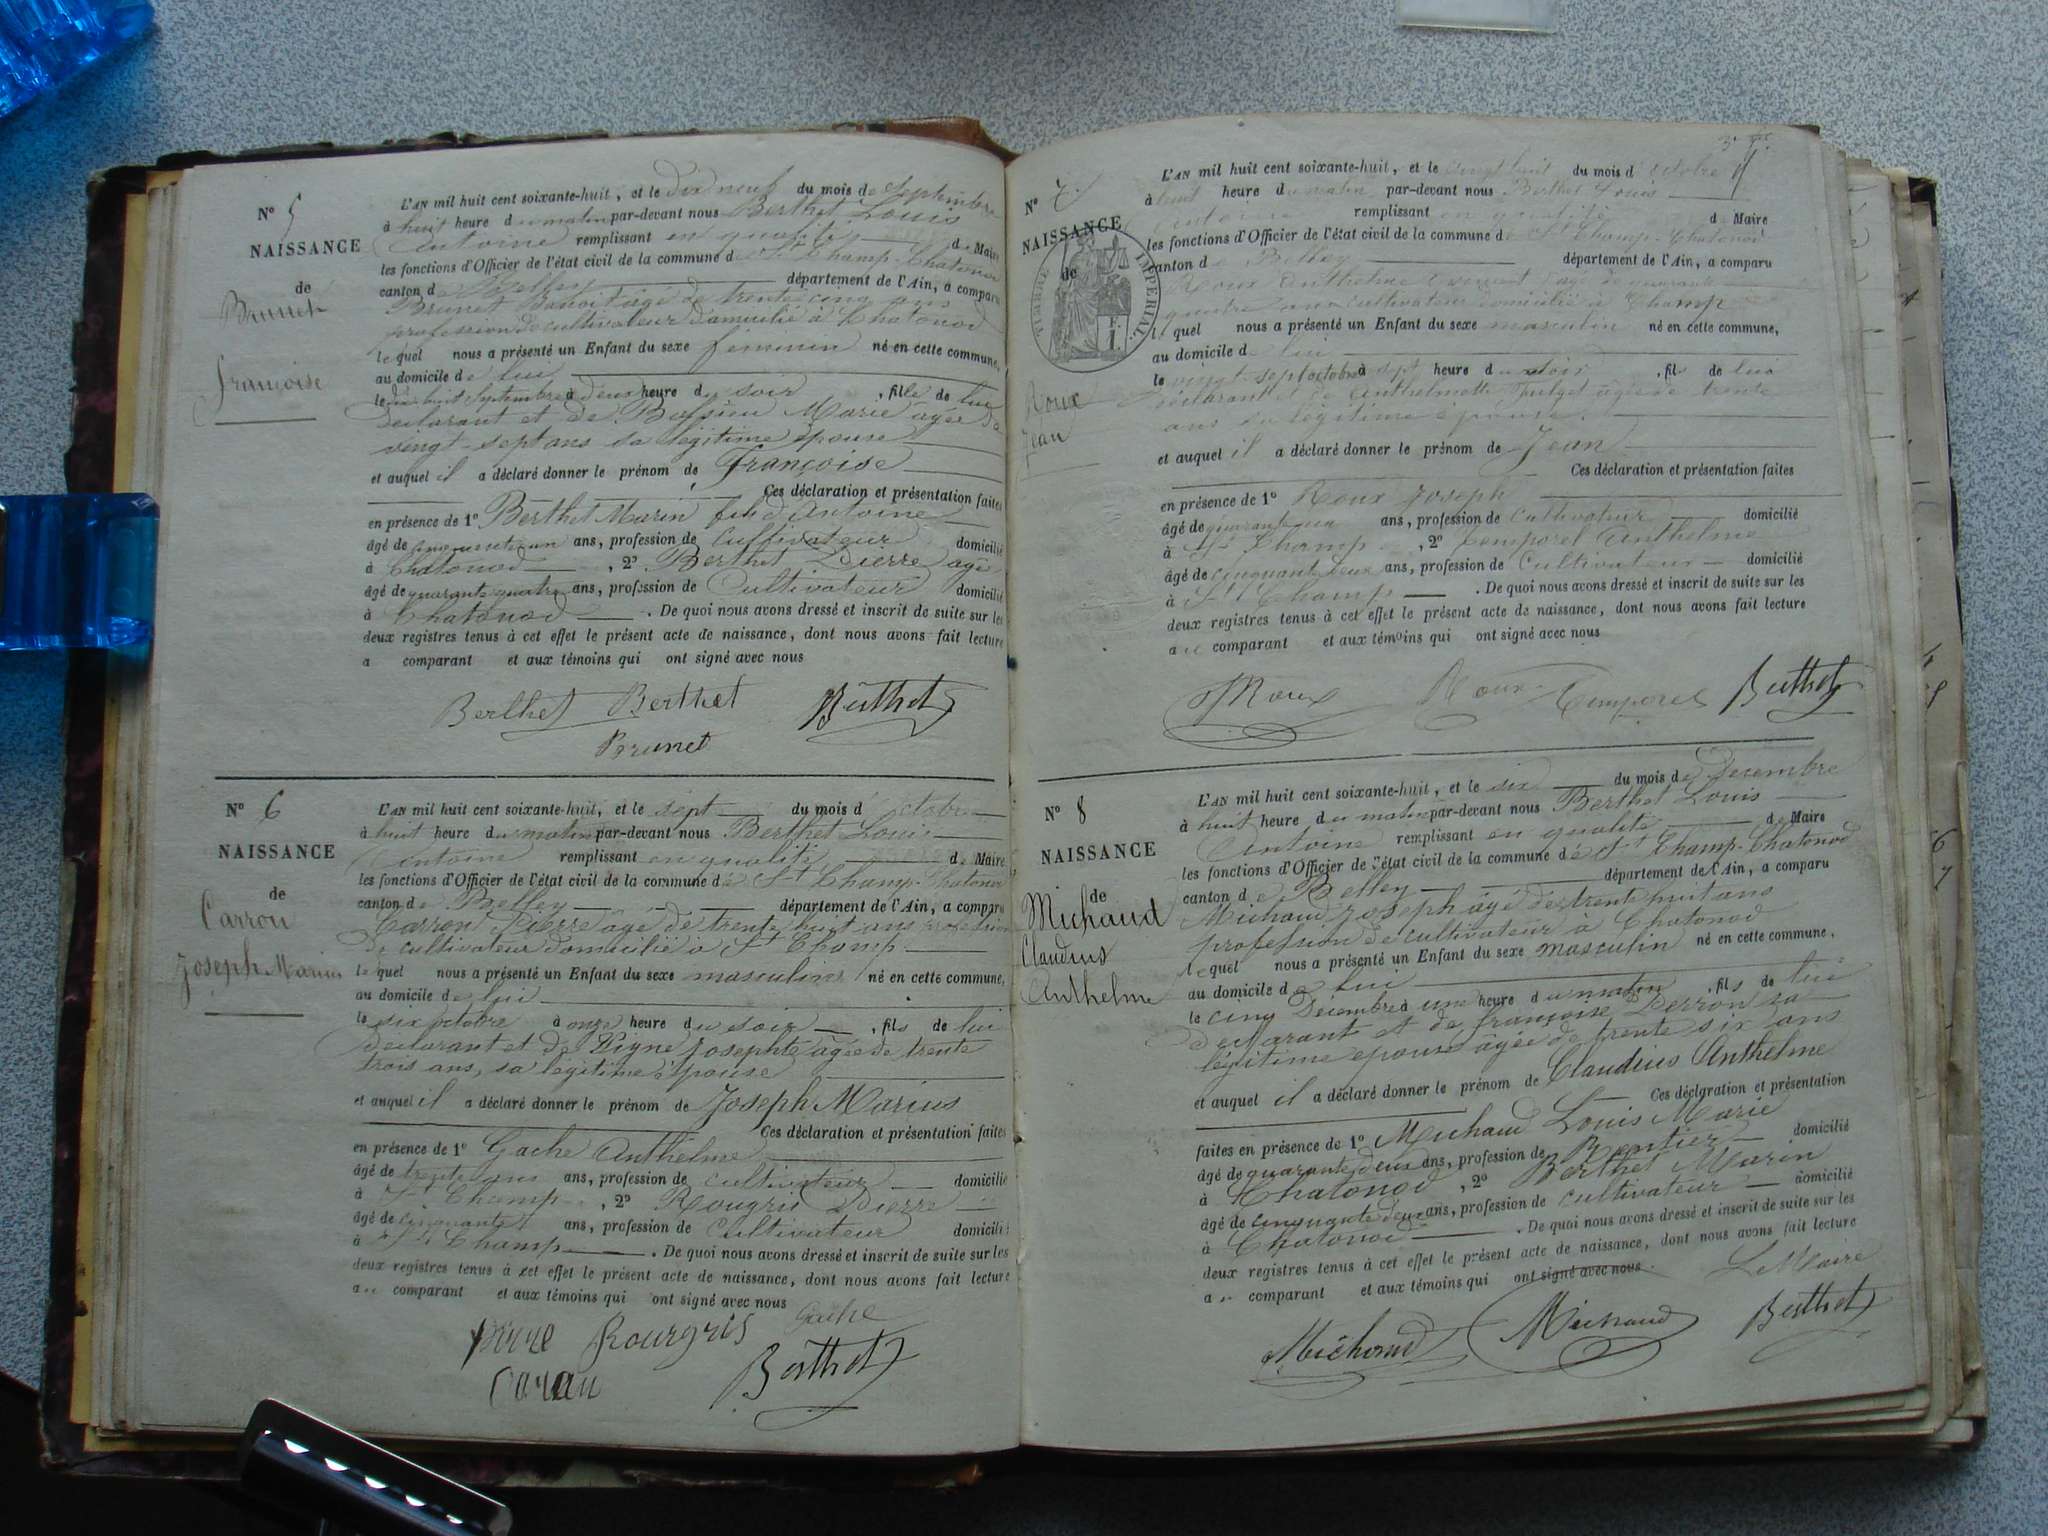 N° 5
NAISSANCE
de
Brunet
françoise
L'AN mil huit cent soixante-huit, et le dix neuf du mois de Septembre
à huit heure du matin par-devant nous Berthet Louis
Antoine remplissant en qualité de Maire
les fonctions d'Officier de l'état civil de la commune de St Champ-Chatonod
canton de Belley département de l'Ain, a comparu
Brunet Benoit âgé de trente cinq ans
profession de cultivateur domicilié à Chatonod
lequel nous a présenté un Enfant du sexe féminin né en cette commune,
au domicile de lui
le dix huit Septembre à deux heure du soir, fille de lui
déclarant et de Marie âgée de
vingt-sept ans sa légitime épouse
et auquel il a déclaré donner le prénom de françoise
Ces déclaration et présentation faites
en présence de 1° Berthet Marin fils d'Antoine
âgé de ans, profession de Cultivateur domicilié
à Chatonod, 2° Berthet Pierre agé
âgé de quarante quatre ans, profession de Cultivateur domicilié
à Chatonod. De quoi nous avons dressé et inscrit de suite sur les
deux registres tenus à cet effet le présent acte de naissance, dont nous avons fait lecture
a comparant et aux témoins qui ont signé avec nous
Berthet Berthet Berthet
Brunet
N° 6
NAISSANCE
de
Carron
Joseph Marius
L'AN mil huit cent soixante-huit, et le sept du mois d'octobre
à huit heure du matin par-devant nous Berthet Louis
Antoine remplissant en qualité de Maire
les fonctions d'Officier de l'état civil de la commune de St Champ-Chatonod
canton de Belley département de l'Ain, a comparu
Carron Pierre âgé de trente huit ans profession
de cultivateur domicilié à St Champ
lequel nous a présenté un Enfant du sexe masculin né en cette commune,
au domicile de lui
le six octobre à onze heure du soir, fils de lui
déclarant et de Josephte âgée de trente
trois ans, sa légitime épouse
et auquel il a déclaré donner le prénom de Joseph Marius
Ces déclaration et présentation faites
en présence de 1° Gache Anthelme
âgé de trente ans, profession de cultivateur domicilié
à St Champ, 2° Rougris Pierre
âgé de cinquante ans, profession de Cultivateur domicilié
à St Champ. De quoi nous avons dressé et inscrit de suite sur les
deux registres tenus à cet effet le présent acte de naissance, dont nous avons fait lecture
au comparant et aux témoins qui ont signé avec nous Gache
pierre Rourgris
Berthet
N° 7
NAISSANCE
de
TIMBRE IMPERIAL
Roux
Jean
L'AN mil huit cent soixante-huit, et le vingt huit du mois d'octobre
à huit heure du matin par-devant nous Berthet Louis
Antoine remplissant en qualité de Maire
les fonctions d'Officier de l'état civil de la commune de St Champ-Chatonod
canton de Belley département de l'Ain, a comparu
Roux Anthelme âgé de quarante
quatre ans cultivateur domicilié à Champ
lequel nous a présenté un Enfant du sexe masculin né en cette commune,
au domicile de lui
le vingt sept octobre à sept heure du soir, fils de lui
déclarant et de Anthelmette âgée de trente
ans sa légitime épouse
et auquel il a déclaré donner le prénom de Jean
Ces déclaration et présentation faites
en présence de 1° Roux Joseph
âgé de quarante un ans, profession de cultivateur domicilié
à St Champ, 2° Temporel Anthelme
âgé de cinquante deux ans, profession de Cultivateur domicilié
à St Champ. De quoi nous avons dressé et inscrit de suite sur les
deux registres tenus à cet effet le présent acte de naissance, dont nous avons fait lecture
au comparant et aux témoins qui ont signé avec nous
JRoux Roux Temporel Berthet
N° 8
NAISSANCE
de
Michaud
Claudius
Anthelme
L'AN mil huit cent soixante-huit, et le six du mois de Décembre
à huit heure du matin par-devant nous Berthet Louis
Antoine remplissant en qualité de Maire
les fonctions d'Officier de l'état civil de la commune de St Champ-Chatonod
canton de Belley département de l'Ain, a comparu
Michaud Joseph âgé de trente huit ans
profession de cultivateur à Chatonod
lequel nous a présenté un Enfant du sexe masculin né en cette commune,
au domicile de lui
le cinq Décembre à une heure du matin, fils de lui
déclarant et de françoise Perron sa
légitime épouse âgée de trente six ans
et auquel il a déclaré donner le prénom de Claudius Anthelme
Ces déclaration et présentation
faites en présence de 1° Michaud Louis Marie
âgé de quarante deux ans, profession de Rentier domicilié
à Chatonod, 2° Berthet Marin
âgé de cinquante deux ans, profession de cultivateur domicilié
à Chatonod. De quoi nous avons dressé et inscrit de suite sur les
deux registres tenus à cet effet le présent acte de naissance, dont nous avons fait lecture
au comparant et aux témoins qui ont signé avec nous.
Le Maire
Michaud Michaud Berthet